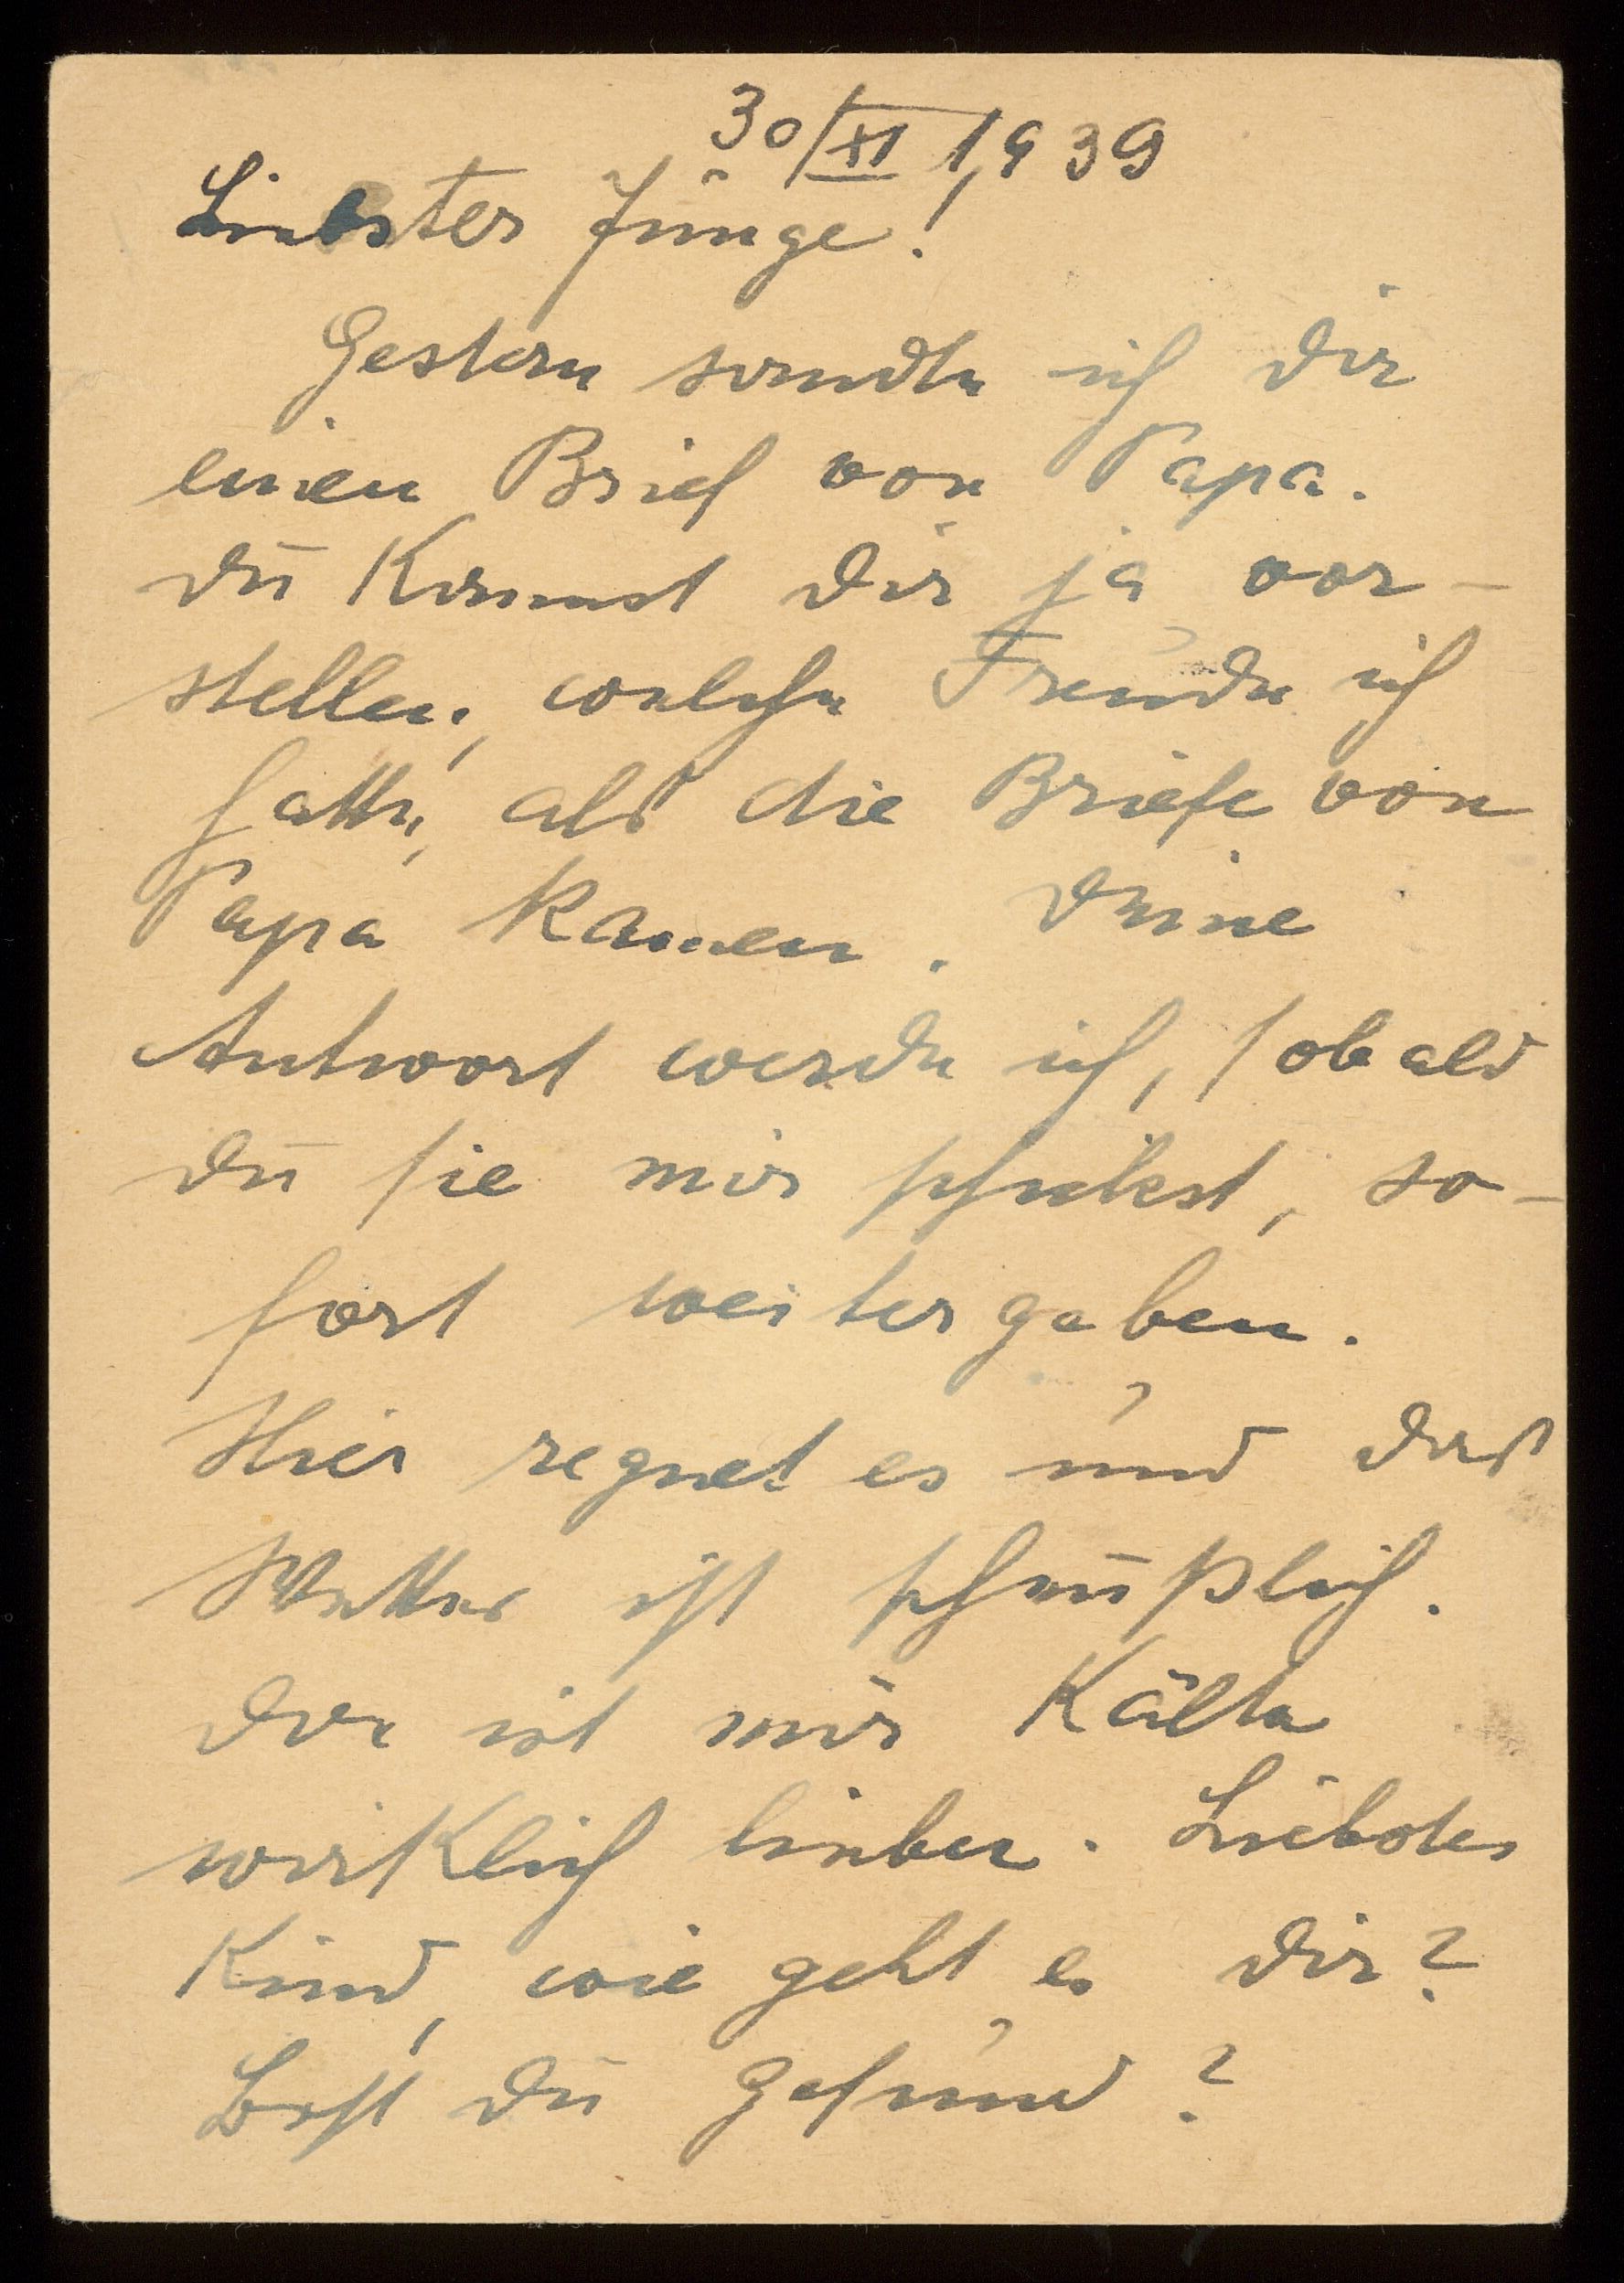 30/XI 1939
Liebster Junge!
Gestern sandte ich Dir
einen Brief von Papa.
Du kannst Dir ja vor-
stellen, welche Freude ich
hatte, als die Briefe von
Papa kamen. Deine
Antwort werde ich, sobald
Du sie mir schickst, so-
fort weitergeben.
Hier regnet es und das
Wetter ist scheußlich.
Da ist mir Kälte
wirklich lieber. Liebstes
Kind, wie geht es Dir?
Bist Du gesund?